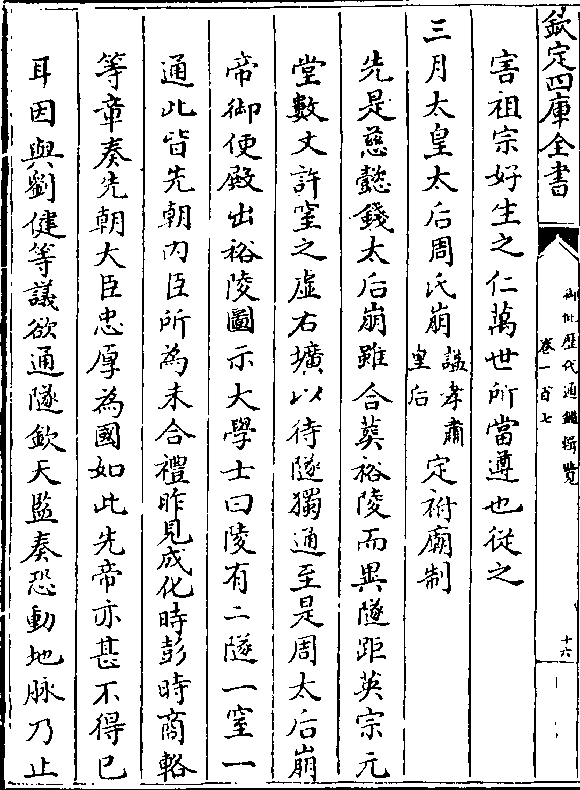 欽定四庫全書
御批歷代通鑑輯覽
卷一百七
十六
害祖宗好生之仁萬世所當遵也從之
三月太皇太后周氏崩
諡孝肅
皇后
定祔廟制
先是慈懿錢太后崩雖合葬裕陵而異隧距英宗元
堂數丈許窒之虛右壙以待隧獨通至是周太后崩
帝御便殿出裕陵圖示大學士曰陵有二隧一窒一
通此皆先朝內臣所為未合禮昨見成化時彭時商輅
等章奏先朝大臣忠厚為國如此先帝亦甚不得已
耳因與劉健等議欲通隧欽天監奏恐動地脉乃止